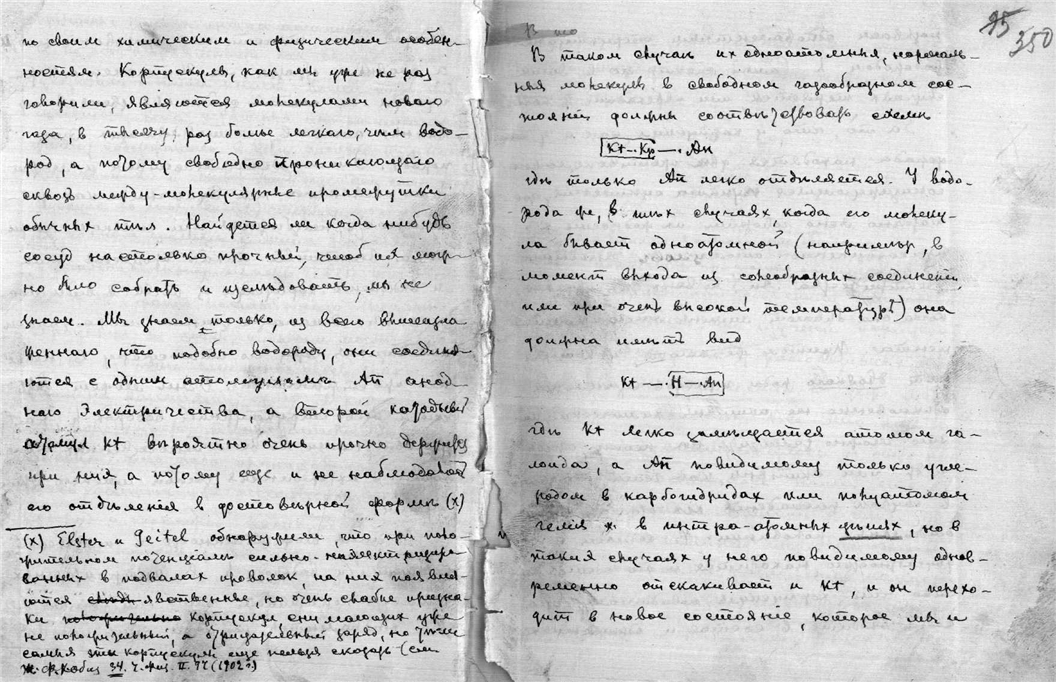 по своим химическим и физическим особен-
ностям. Корпускулы, как мы уже не раз
говорили, являются молекулами новаго
газа, в тысячу раз более легкаго, чем водо-
род, а потому свободно проникающаго
сквозь между-молекулярные промежутки
обычных тел. Найдется ли когда нибудь
сосуд настолько прочный, чтоб их мож-
но было собрать и изследовать, мы не
знаем. Мы знаем только, из всего вышеизла
женнаго, что подобно водороду, они соединя-
ются с одним атомулом An анод-
наго электричества, а второй катодный
атомул Kt вероятно очень прочно держится
при них, а потому еще и не наблюдали
его отделения в достоверной форме (x)
(x) Elster и Geitel обнаружили, что при поло-
жительном потенциале сильно-наэлектризиро-
ванных в подвалах проволок, на них появля-
ются явственные, но очень слабые призна-
ки корпускул они имеющих уже
не положительный, а отрицательный заряд, но те же
самыя эти корпускулы еще нельзя сказать (см
Ж. Ф. Х. Общ. 34. ч. физ. II. 77 (1902 г)
95
350
В то
В таком случае их одноатомныя, нормаль-
ныя молекулы в свободном газообразном сос-
тоянии должны соответствовать схеме
Kt—.Kp—. An
где только An легко отделяется. У водо-
рода же, в тех случаях, когда его молеку-
ла бывает одноатомной (например, в
момент выхода из солеобразных соединений
или при очень высокой температуре) она
должна иметь вид
Kt —. H —. An
где Kt легко замещается атомом га-
лоида, а An повидимому только угле-
родом в карбогидридах или полуатомом
гелия x в интра-атомных цепях, но в
таких случаях у него повидимому однов-
ременно отскакивает и Kt, и он перехо-
дит в новое состояние, которое мы и